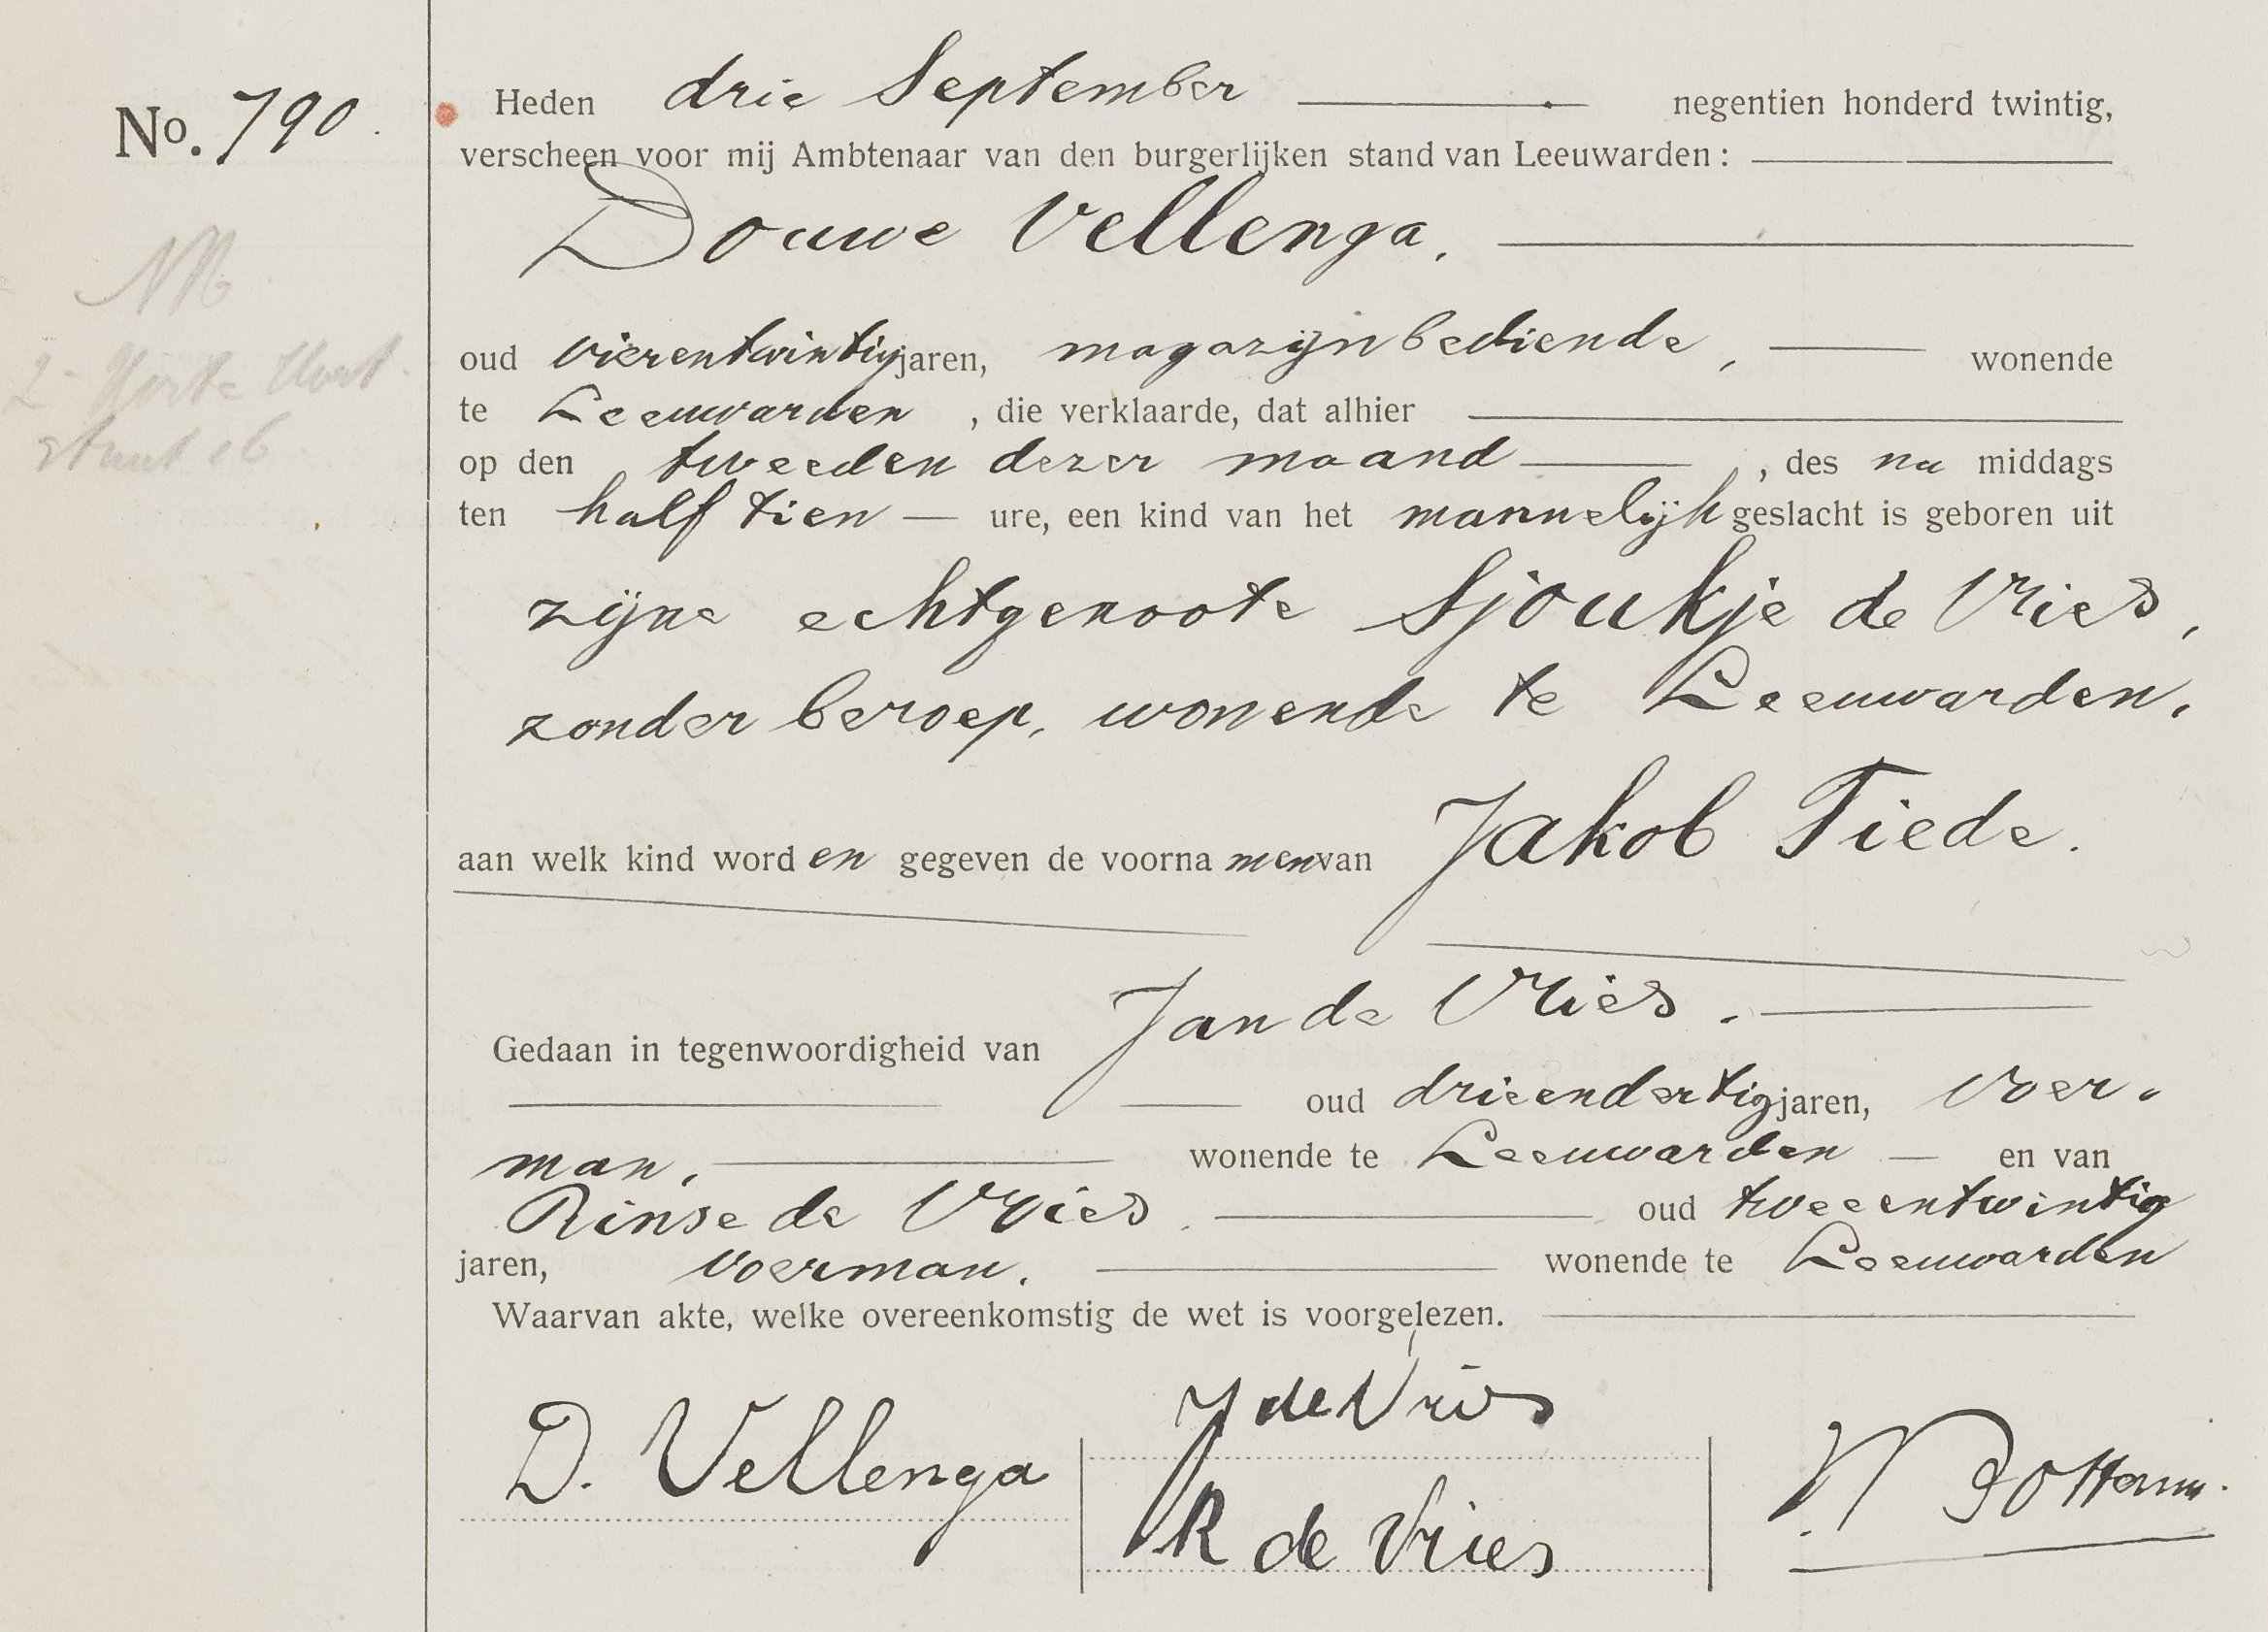 No. 790.
Heden drie September negentien honderd twintig,
verscheen voor mij Ambtenaar van den burgerlijken stand van Leeuwarden:
Douwe Vellenga.
oud vierentwintig jaren, magazijnbediende, wonende
te Leeuwarden, die verklaarde, dat alhier
op den tweeden dezer maand, des na middags
ten half tien — ure, een kind van het mannelijk geslacht is geboren uit
zijne echtgenoote Sjoukje de Vries,
zonder beroep, wonende te Leeuwarden.
aan welk kind worden gegeven de voornamen van Jakob Tiede.
Gedaan in tegenwoordigheid van Jan de Vries.
oud drieendertig jaren, voer-
man, wonende te Leeuwarden — en van
Rinse de Vries. oud tweeentwintig
jaren, voerman. wonende te Leeuwarden
Waarvan akte, welke overeenkomstig de wet is voorgelezen.
J de Vries
D. Vellenga
R de Vries